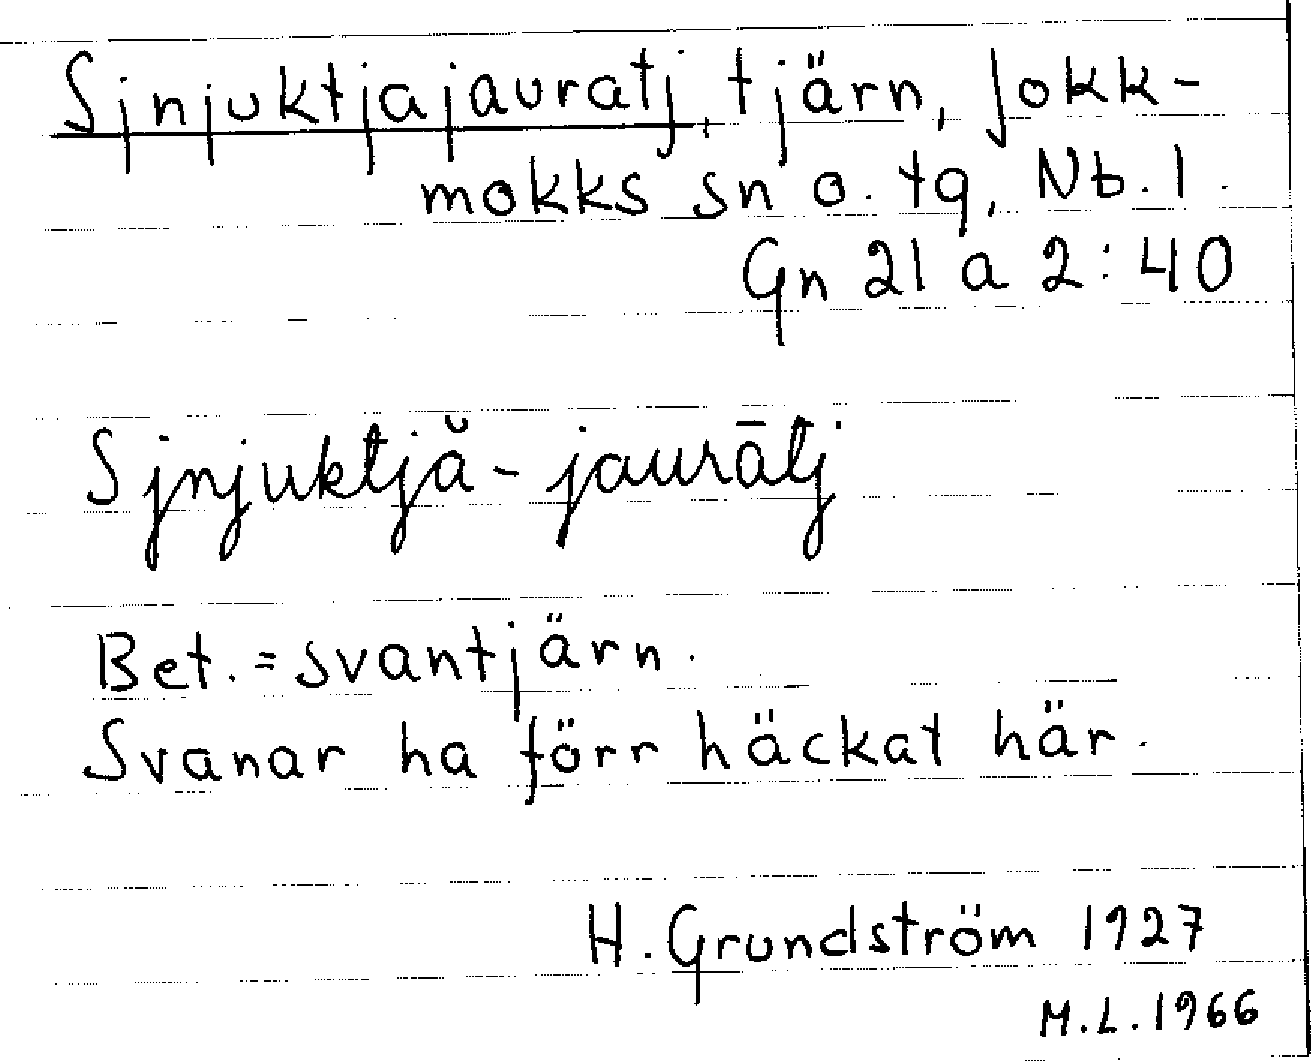 Sjnjuktjajauratj, tjärn, Jokk-
mokks sn o. tg, Nb. l.
Gn 21 a 2:40
Sjnjuktjă-jaurātj
Bet. = svantjärn.
Svanar ha förr häckat här.
H. Grundström 1927
M.L. 1966